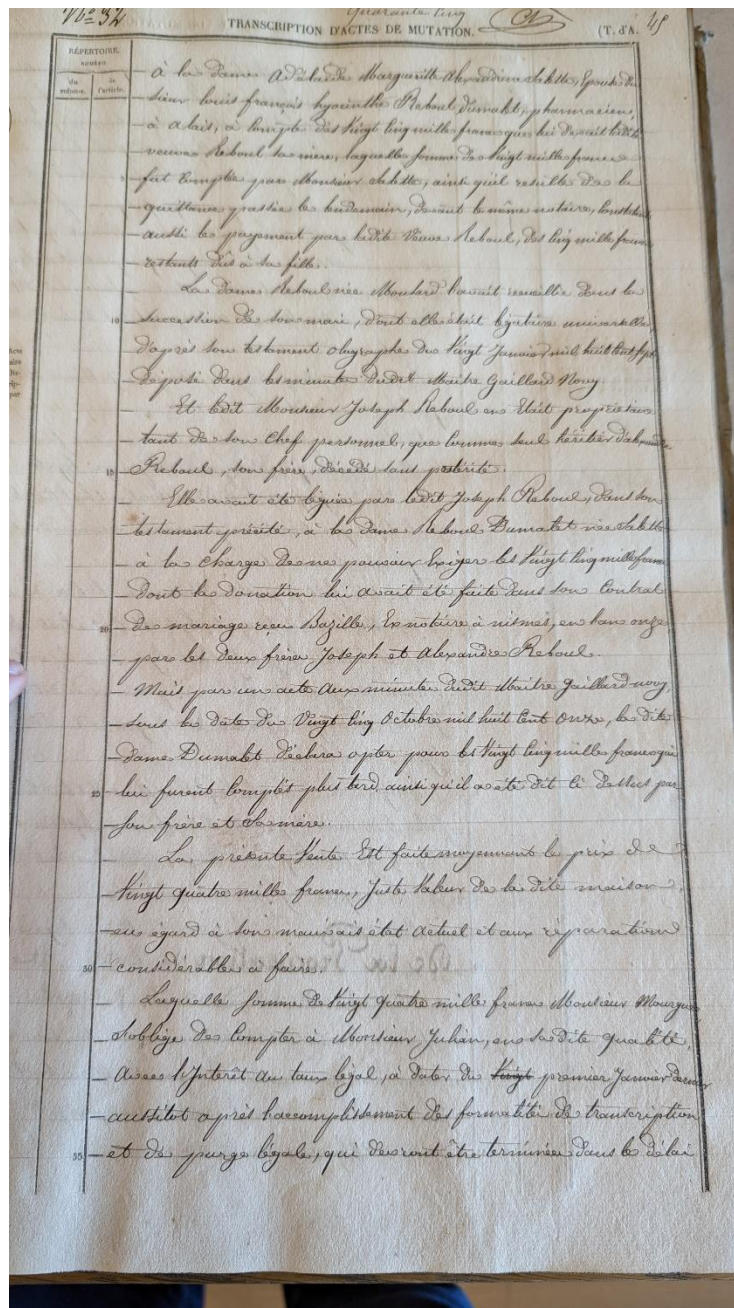 N° 32
Quarante cinq
TRANSCRIPTION D'ACTES DE MUTATION.
(T. d'A. 45
RÉPERTOIRE.
numéro
du volume.
de l'article.
à la dame Adélaïde Marguerite Alexandrine Salette, Epouse du
sieur louis françois hyacinthe Reboul Dumalet, pharmacien,
à alais, à Compte des Vingt Cinq mille francs que lui devait ladite
veuve Reboul sa mère, laquelle somme de Vingt mille francs
5 fut Comptée par Monsieur Salette, ainsi qu'il resulte de la
quittance passée le lendemain, devant le même notaire, Constatant
aussi le payement par ladite Veuve Reboul, des Cinq mille francs
restants dûs à sa fille.
La Dame Reboul née Moulard l'avait recueillie dans la
10 succession de son mari, dont elle était légataire universelle
d'après son testament olographe du Vingt Janvier mil huit Cent sept
déposé dans les minutes dudit Maitre Gaillard Novy.
Et ledit Monsieur Joseph Reboul en Etait propriétaire
tant de son Chef personnel, que Comme seul héritier d'alexandre
15 Reboul, son frère, décédé sans postérité.
Elle avait été léguée par ledit Joseph Reboul, dans son
testament précité, à la Dame Reboul Dumalet née Salette
à la charge de ne pouvoir Exiger les Vingt Cinq mille francs
dont la donation lui avait été faite dans son Contrat
20 de mariage reçu Bazille, Ex notaire à nismes, en l'an onze
par les deux frères Joseph et Alexandre Reboul.
Mais par un acte aux minutes dudit Maitre Gaillard novy,
sous la date du Vingt Cinq Octobre mil huit Cent Onze, la dite
dame Dumalet déclara opter pour les Vingt Cinq mille francs qui
25 lui furent Comptés plus tard ainsi qu'il a été dit Ci dessus par
son frère et Sa mère.
La présente Vente Est faite moyennant le prix de
Vingt quatre mille francs, Juste Valeur de la dite maison
eu égard à son mauvais état actuel et aux réparations
30 considérables à faire.
Laquelle somme de Vingt quatre mille francs Monsieur Mourgues
s'oblige de Compter à Monsieur Julian, en sa dite qualité,
avec l'Interêt au taux légal, à dater du Vingt premier Janvier dernier
aussitot après l'accomplissement des formalités de transcription
35 et de purge légale, qui devront être terminées dans le délai